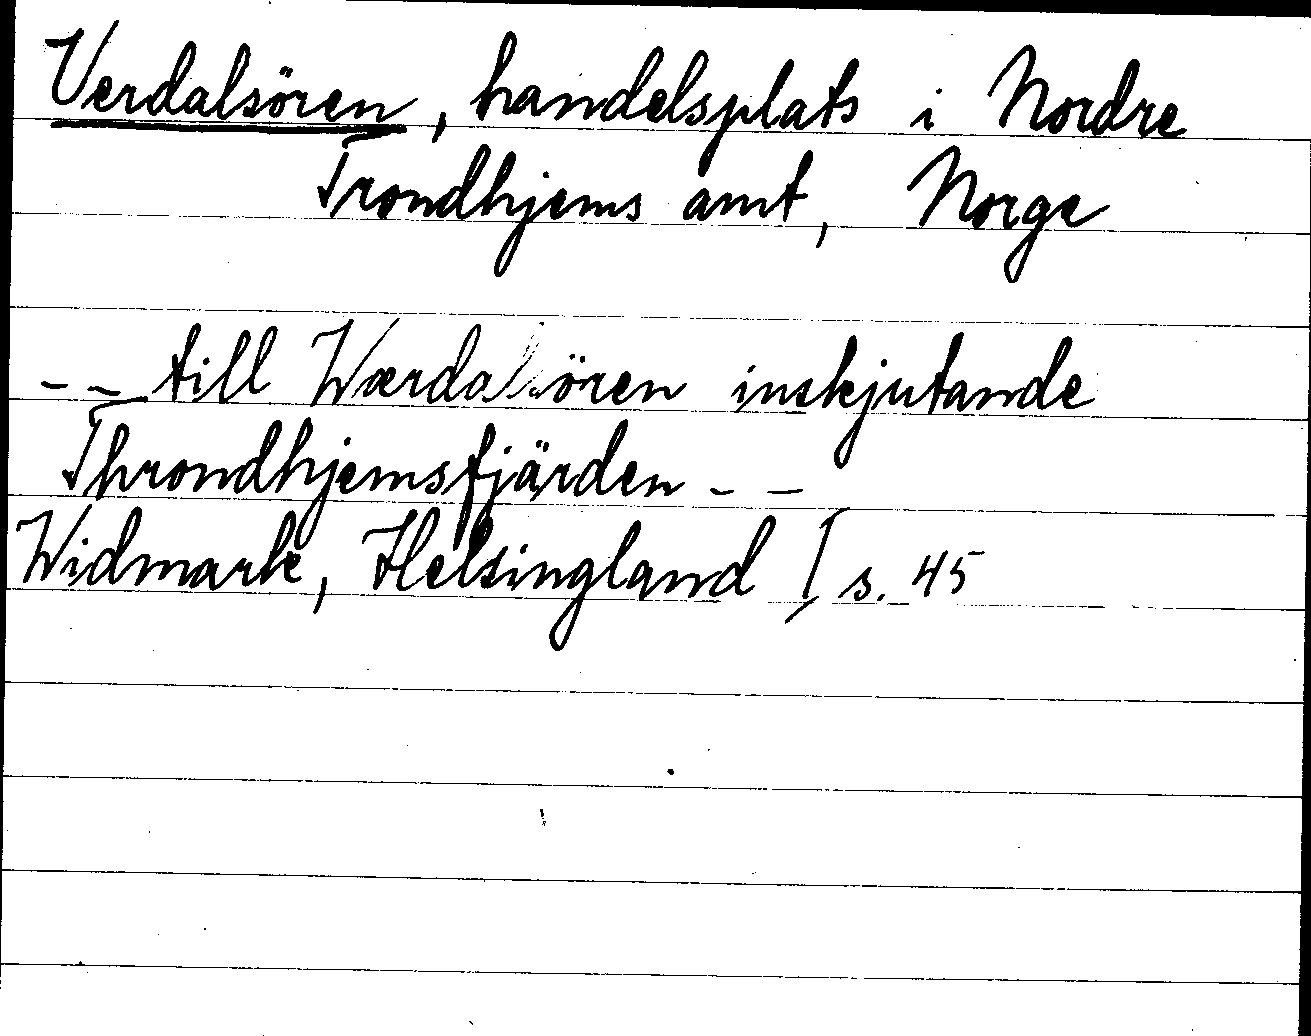 Verdalsören, handelsplats i Nordre
Trondhjems amt, Norge
-- till Værdalsören inskjutande
Throndhjemsfjärden --
Widmark, Helsingland I s. 45